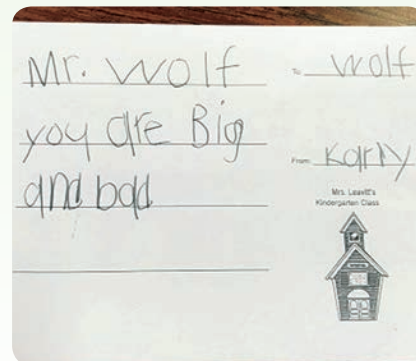 Mr. Wolf
you are Big
and bad
To wolf
From: Karly
Mrs. Leavitt's
Kindergarten Class